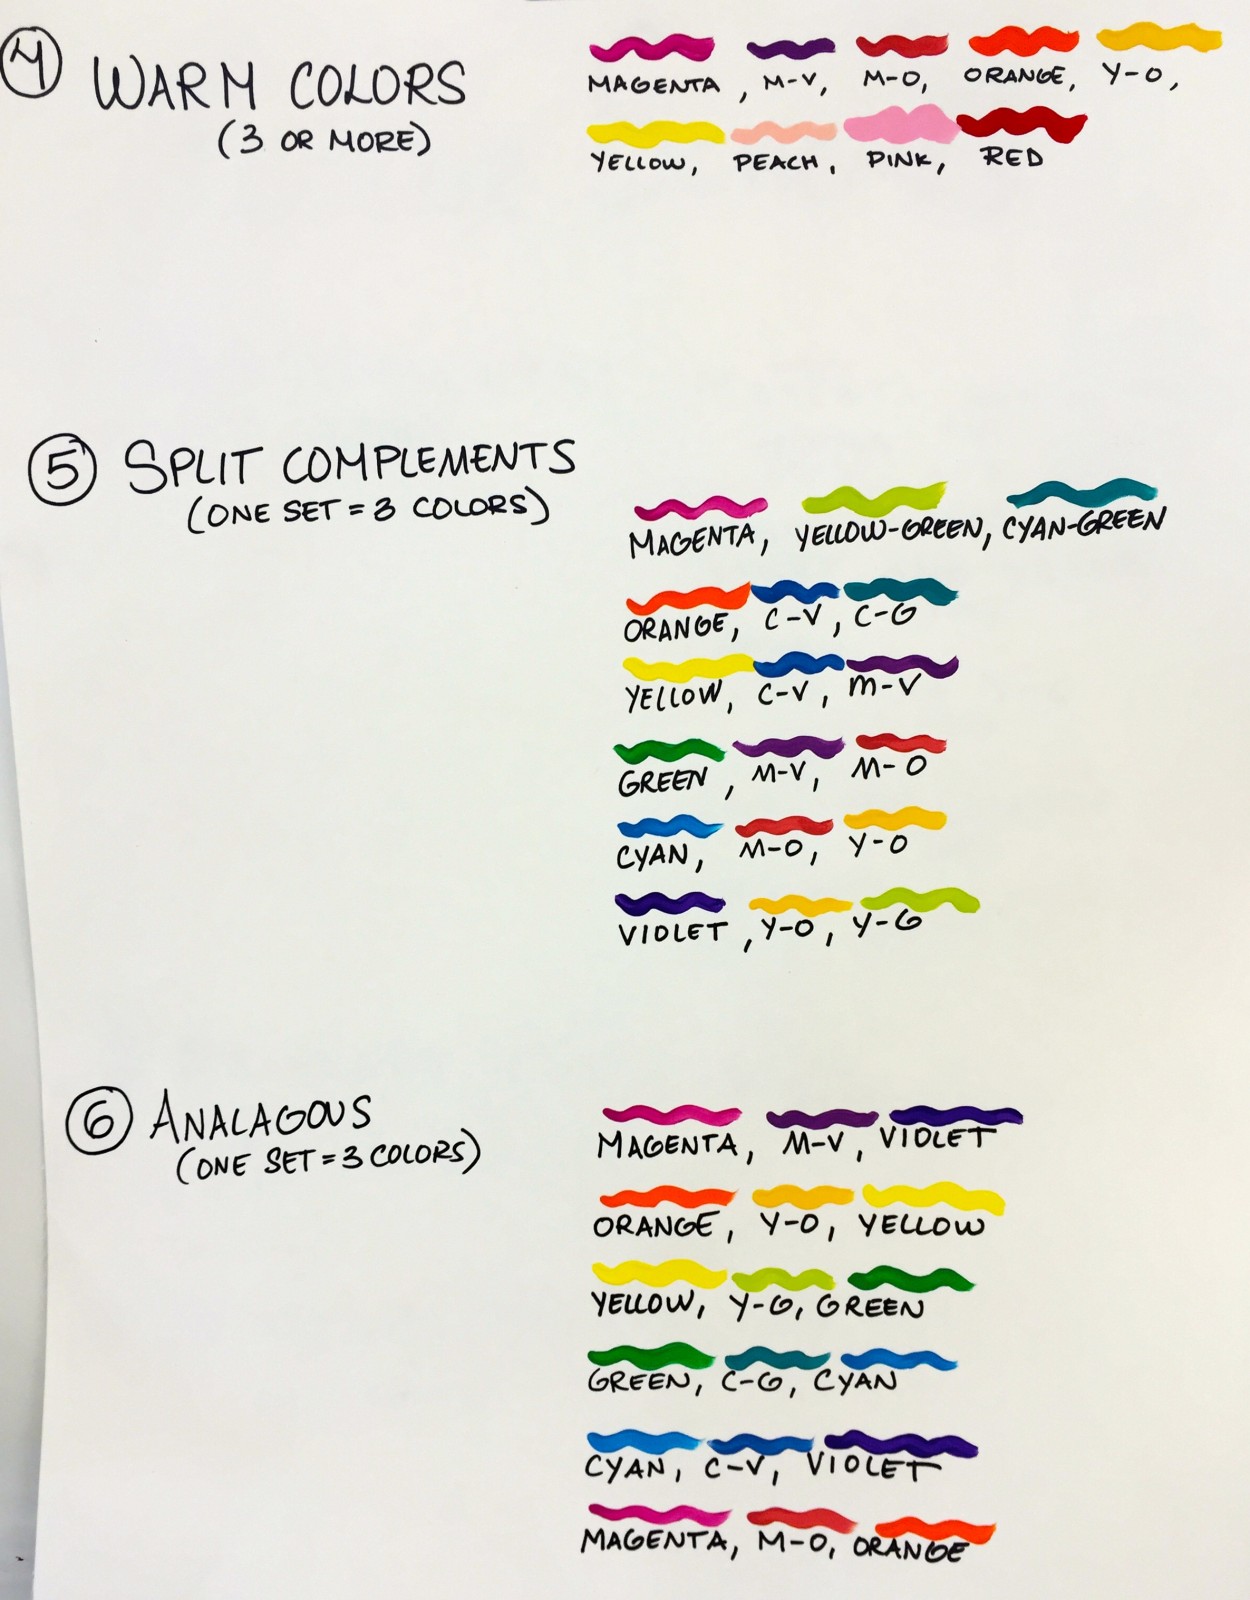 4 WARM COLORS
(3 OR MORE)
MAGENTA, M-V, M-O, ORANGE, Y-O,
YELLOW, PEACH, PINK, RED
5 SPLIT COMPLEMENTS
(ONE SET = 3 COLORS)
MAGENTA, YELLOW-GREEN, CYAN-GREEN
ORANGE, C-V, C-G
YELLOW, C-V, M-V
GREEN, M-V, M-O
CYAN, M-O, Y-O
VIOLET, Y-O, Y-G
6 ANALAGOUS
(ONE SET = 3 COLORS)
MAGENTA, M-V, VIOLET
ORANGE, Y-O, YELLOW
YELLOW, Y-G, GREEN
GREEN, C-G, CYAN
CYAN, C-V, VIOLET
MAGENTA, M-O, ORANGE